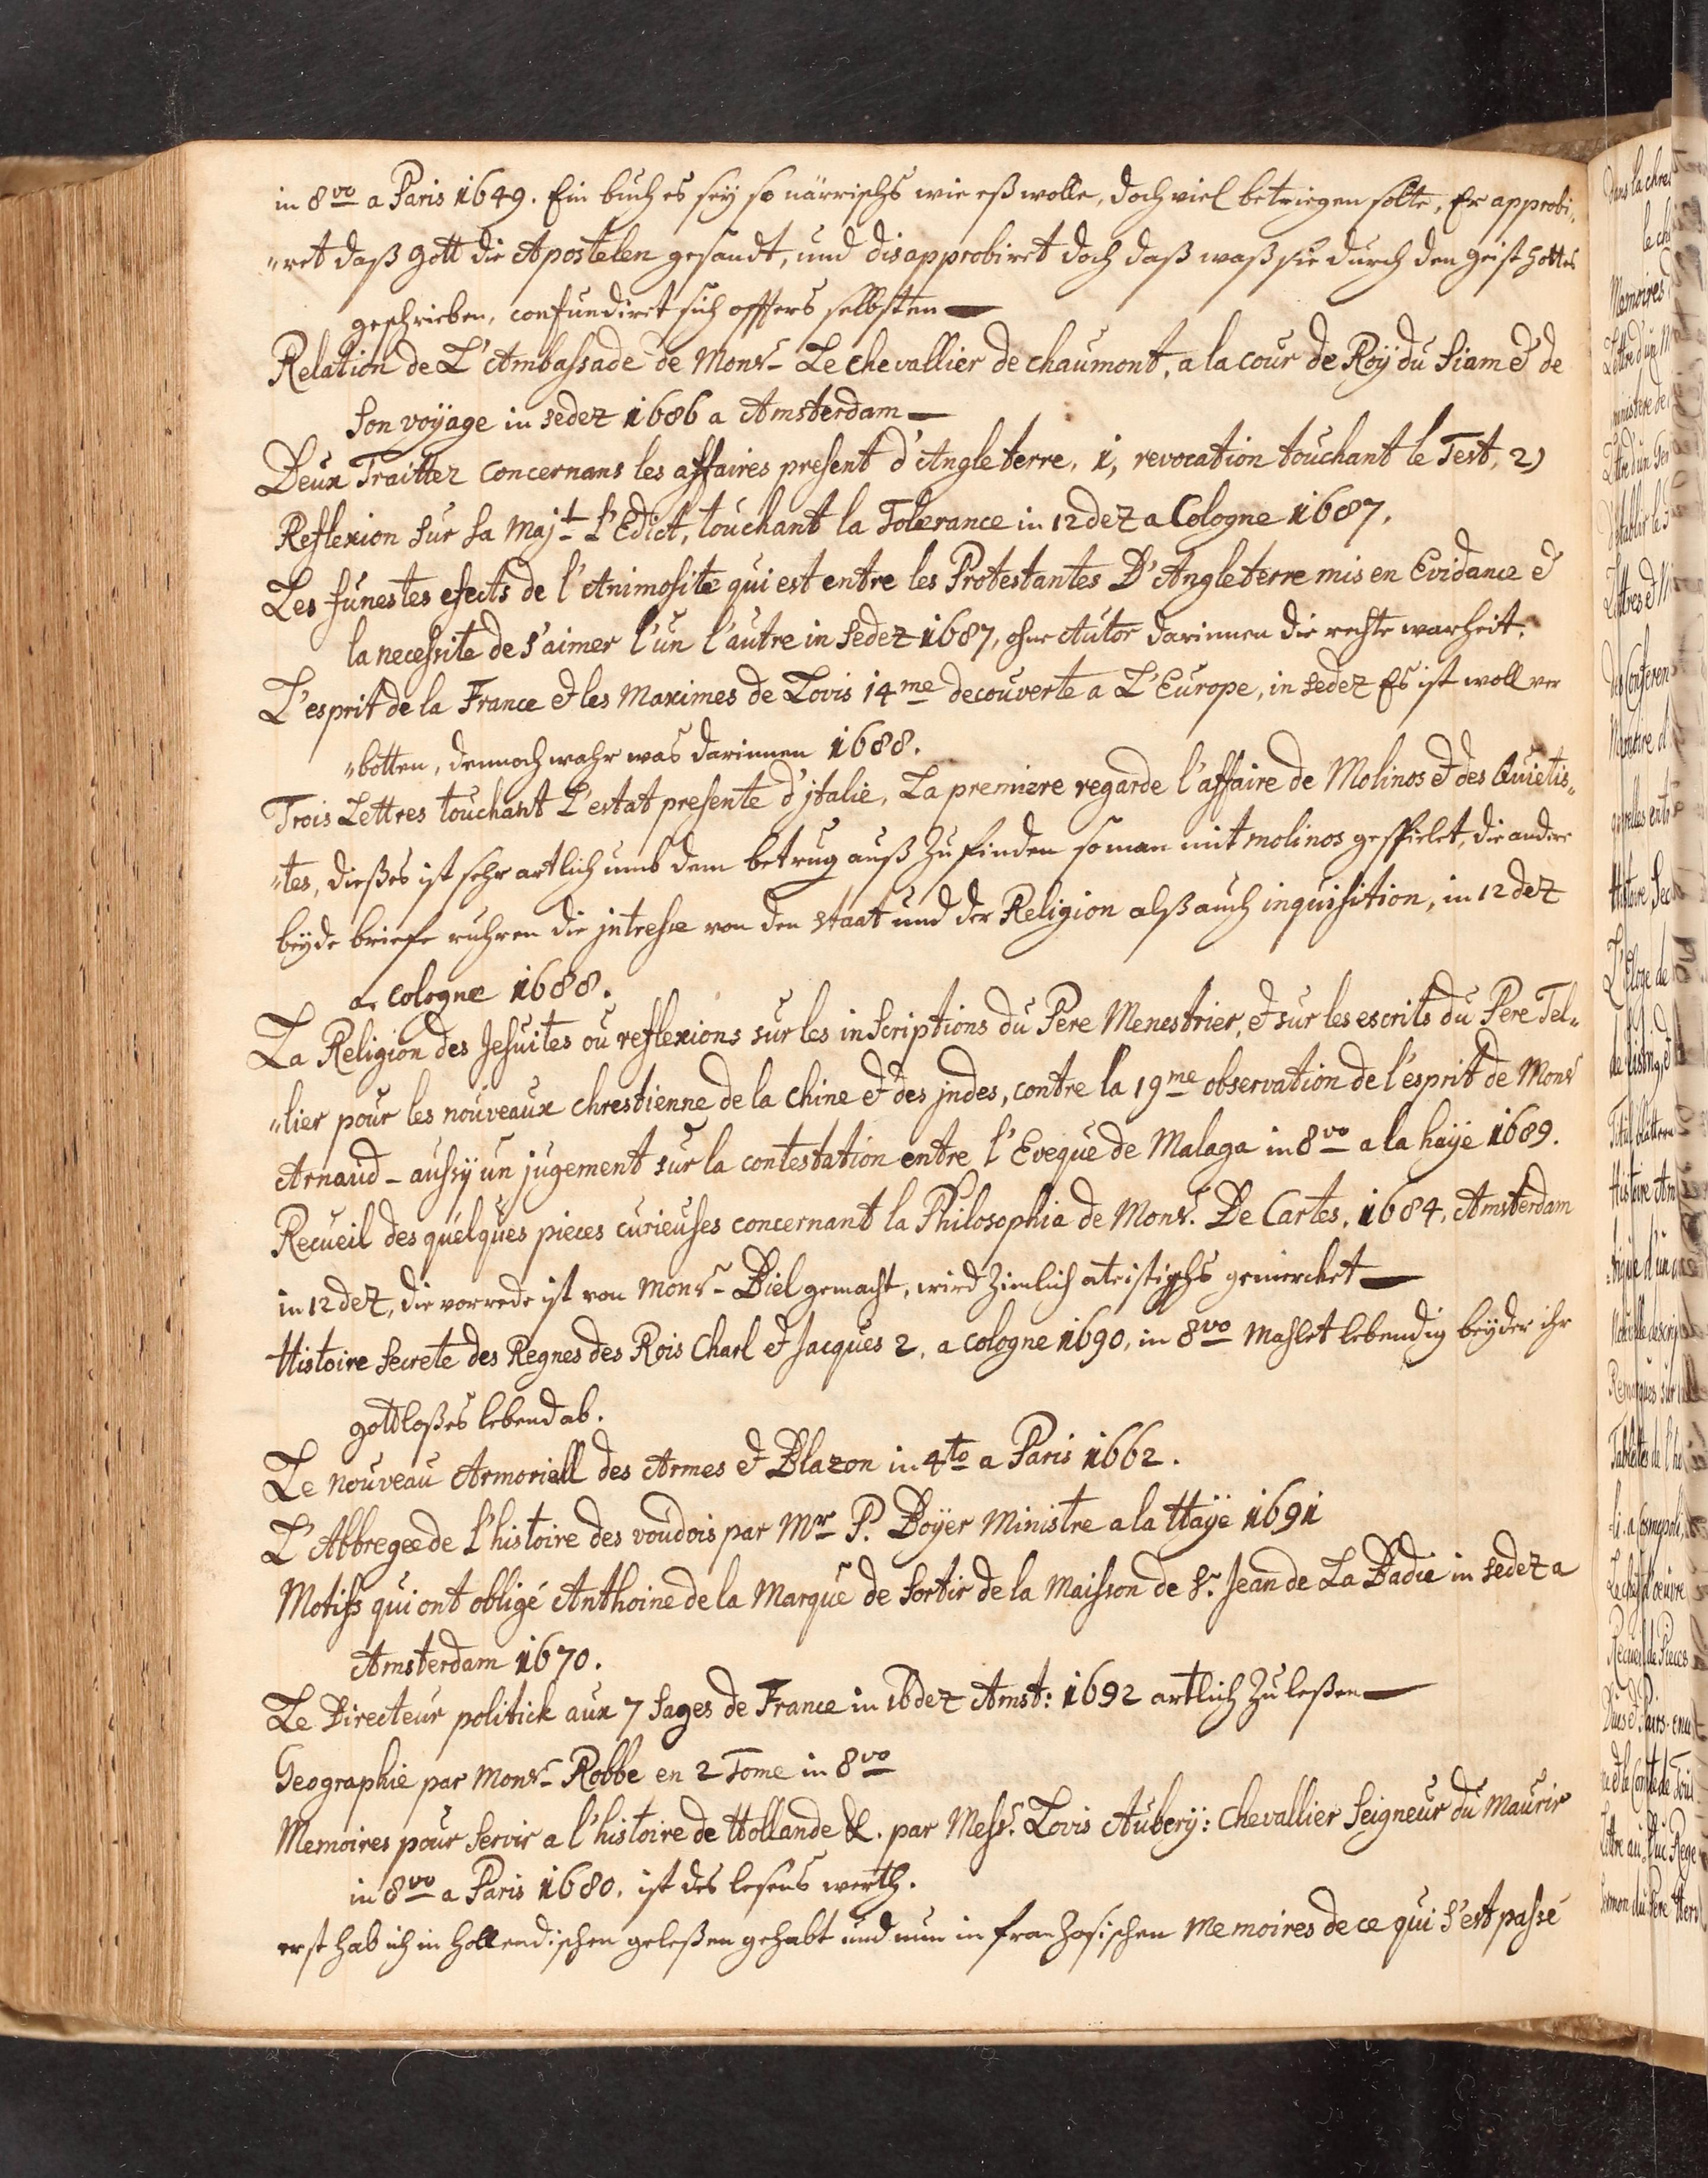 in 8vo a Paris 1649. Ein buch es seÿ so närrischs wie eß wolle, doch viel betriegen solte, Er approbi„
„ret daß Gott die Apostelen gesandt, und disapprobiret doch daß waß sie durch den geist Gottes
geschrieben, confundiret sich offters selbsten —
Relation de L'Ambassade de Monsr Le chevallier de chaumont, a la cour de Roÿ du Siam & de
son voÿage in sedez 1686 a Amsterdam —
Deux Traittez concernans les affaires present d'Angleterre, 1, revocation touchant le Test, 2)
Reflexion sur sa Majt L'Edict, touchant la Tolerance in 12dez a Cologne 1687.
Les funestes efects de l'Animosite qui est entre les Protestantes D'Angleterre mis en Evidance &
la necessite de s'aimer l'un l'autre in sedez 1687, ohne Autor darinnen die rechte warheit.
L'esprit de la France & les Maximes de Lovis 14me decouverte a L'Europe, in sedez Es ist woll ver
„botten, dennoch wahr was darinnen 1688.
Trois Lettres touchant L'estat presente d'jtalie, La premiere regarde l'affaire de Molinos & des Quietis„
„tes, dießes ist sehr artlich umb dem betrug auß zu finden so man mit molinos gespielet, die andere
beÿde briefe ruhren die jntresse von den staat und der Religion alß auch inquisition, in 12dez
a cologne 1688.
La Religion des Jesuites ou reflexions sur les inscriptions du Pere Menestrier, & sur les escrits du Pere Tel„
„lier pour les nouveaux chrestienne de la chine & des jndes, contre la 19me observation de l'esprit de Monsr
Arnaud - aussÿ un jugement sur la contestation entre l'Eveque de Malaga in 8vo a la haÿe 1689.
Recueil des quelques pieces curieuses concernant la Philosophia de Monsr. De Cartes. 1684, Amsterdam
in 12dez, die vorrede ist von Monsr Biel gemacht, wird zimlich ateistischs gemercket —
Histoire Secrete des Regnes des Rois Charl & Jacques 2, a cologne 1690, in 8vo mahlet lebendig beÿder ihr
gottloßes lebend ab.
Le nouveau Armoriell des Armes & Blazon in 4to a Paris 1662.
L'Abbregee de L'histoire des voudois par Mr P. Boÿer Ministre a la Haÿe 1691
Motifs qui ont obligé Anthoine de la Marque de sortir de la Maisson de Sr. Jean de La Badie in sedez a
Amsterdam 1670.
Le Directeur politick aux 7 sages de France in 16dez Amst: 1692 artlich zu leßen —
Geographie par Monsr Robbe en 2 Tome in 8vo
Memoires pour servir a l'histoire de Hollande &. par Messr. Lovis Auberÿ: Chevallier Seigneur du Maurir
in 8vo a Paris 1680. ist des lesens werth.
erst hab ich in Hollendischen geleßen gehabt und nun in franzosischen Memoires de ce qui s'est passé